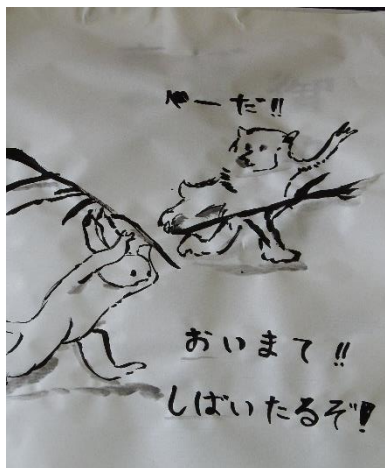 やーだ!!
おいまて!!
しばいたるぞ!